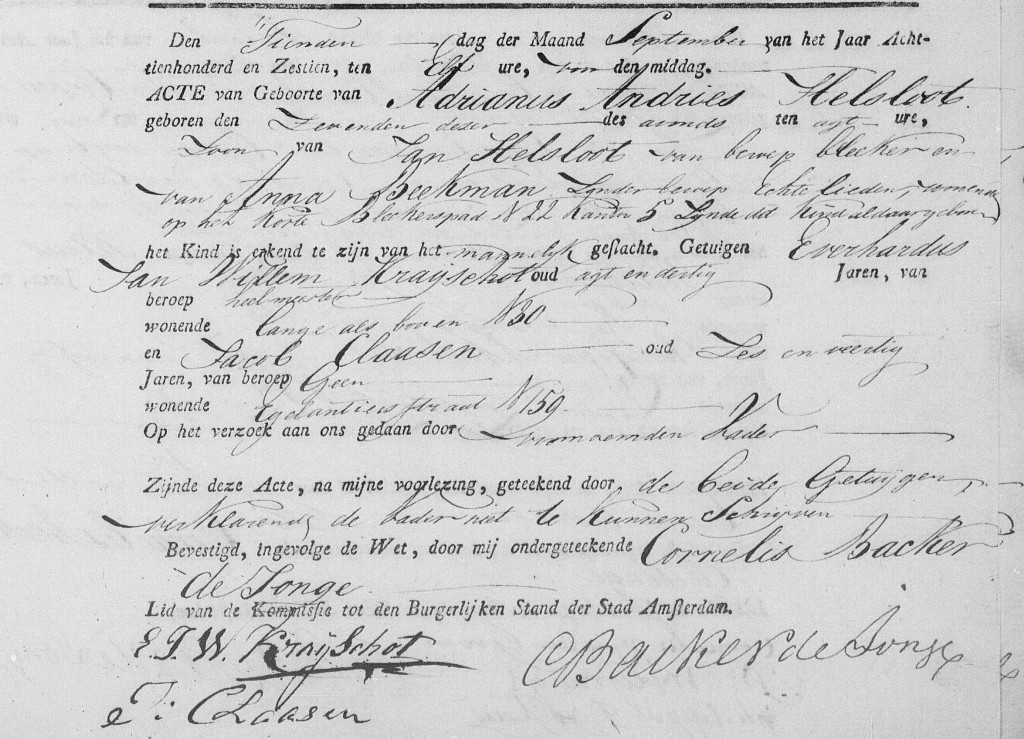 Den Tienden dag der Maand September van het Jaar Acht-
tienhonderd en Zestien, ten Elf ure, voor den middag.
ACTE van Geboorte van Adrianus Andries Helsloot
geboren den Zevenden deser des avonds ten agt ure,
Zoon van Jan Helsloot van beroep bleeker en
van Anna Beekman Zynder beroep Echte lieden, wonende
op het Korte Bleekerspad N 22 Kanton 5 Zynde dit Kind aldaar geboren
het Kind is erkend te zijn van het mannelyk geslacht. Getuigen Everhardus
Jan Willem Krayschot oud agt en dertig Jaren, van
beroep heelmeester
wonende lange als boven N 30
en Jacob Claasen oud Zes en veertig
Jaren, van beroep Geen
wonende Egelantiersstraat N 159
Op het verzoek aan ons gedaan door voornoemden Vader
Zijnde deze Acte, na mijne voorlezing, geteekend door, de beide Getuigen,
verklarende de vader niet te kunnen Schryven
Bevestigd, ingevolge de Wet, door mij ondergeteekende Cornelis Backer
de Jonge
Lid van de Kommissie tot den Burgerlijken Stand der Stad Amsterdam.
E. J. W. KraySchot
C Backer de Jonge
J: Claasen